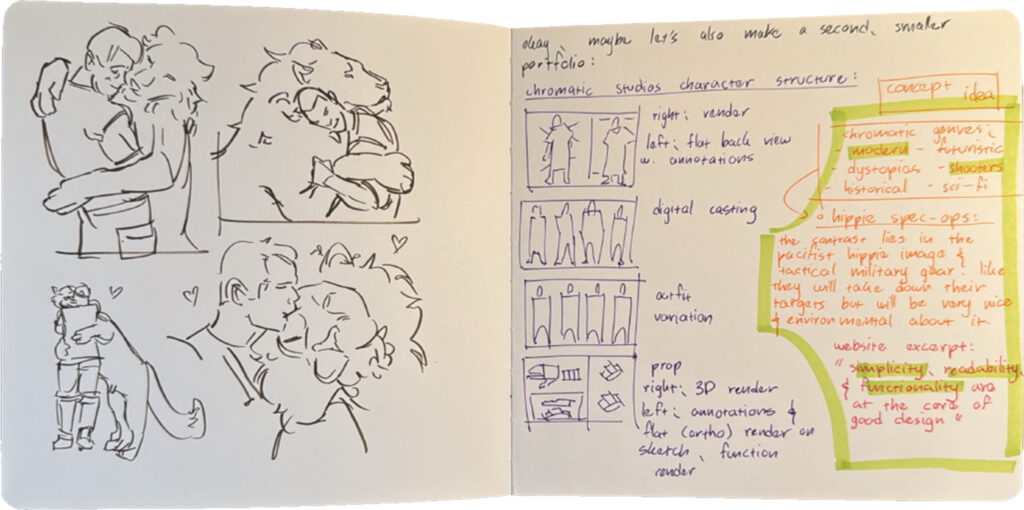 okay, maybe let's also make a second, smaller
portfolio:
chromatic studios character structure:
right: render
left: flat back view
w. annotations
digital casting
outfit
variation
prop
right: 3D render
left: annotations &
flat (ortho) render or
sketch, function
render
concept idea
chromatic genres:
- modern - futuristic
- dystopias - shooters
- historical - sci-fi
hippie spec-ops:
the contrast lies in the
pacifist hippie image &
tactical military gear. like
they will take down their
targets but will be very nice
& environmental about it.
website excerpt:
"simplicity, readability,
& functionality are
at the core of
good design"